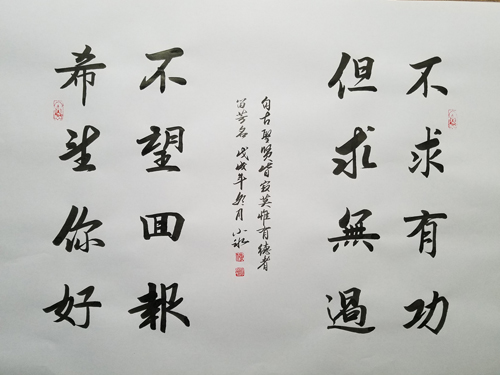 不求有功
但求無過
自古聖賢皆寂莫惟有德者
留芳名 戊戌年冬月小冰
不望回報
希望你好